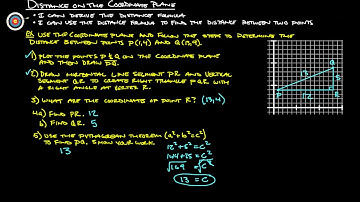 DISTANCE ON THE COORDINATE PLANE
• I CAN DERIVE THE DISTANCE FORMULA
• I CAN USE THE DISTANCE FORMULA TO FIND THE DISTANCE BETWEEN TWO POINTS
EX USE THE COORDINATE PLANE AND FOLLOW THE STEPS TO DETERMINE THE
DISTANCE BETWEEN POINTS P(1,4) AND Q(13,9).
1) PLOT THE POINTS P & Q ON THE COORDINATE PLANE
AND THEN DRAW PQ.
2) DRAW HORIZONTAL LINE SEGMENT PR AND VERTICAL
SEGMENT QR TO CREATE RIGHT TRIANGLE PQR WITH
A RIGHT ANGLE AT VERTEX R.
3) WHAT ARE THE COORDINATES OF POINT R? (13,4)
4a) FIND PR. 12
b) FIND QR. 5
5) USE THE PYTHAGOREAN THEOREM (a²+b²=c²)
TO FIND PQ. SHOW YOUR WORK.
13
12²+5²=c²
144+25=c²
√169 = √c²
13 = c
Q
13
5
P
12
R